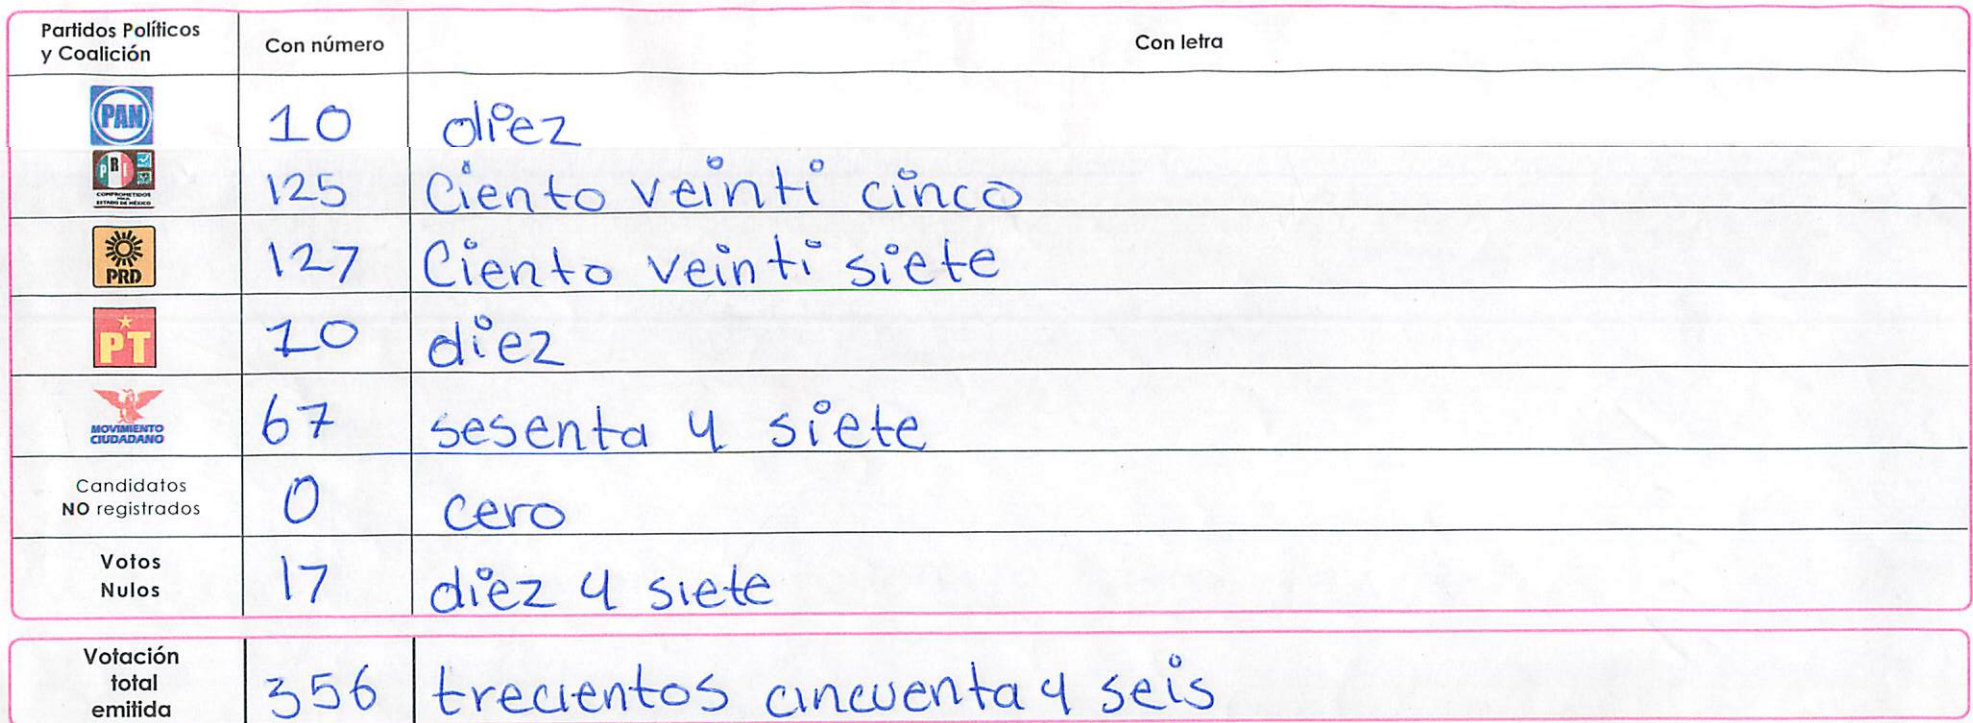 Partidos Políticos
y Coalición
Con número
Con letra
PAN 10 diez
PRI
COMPROMETIDOS
ESTADO DE MÉXICO
125 Ciento veinti cinco
PRD 127 Ciento veinti siete
PT 10 diez
MOVIMIENTO
CIUDADANO
67 sesenta y siete
Candidatos
NO registrados
0 cero
Votos
Nulos
17 diez y siete
Votación
total
emitida
356 trecientos cincuenta y seis